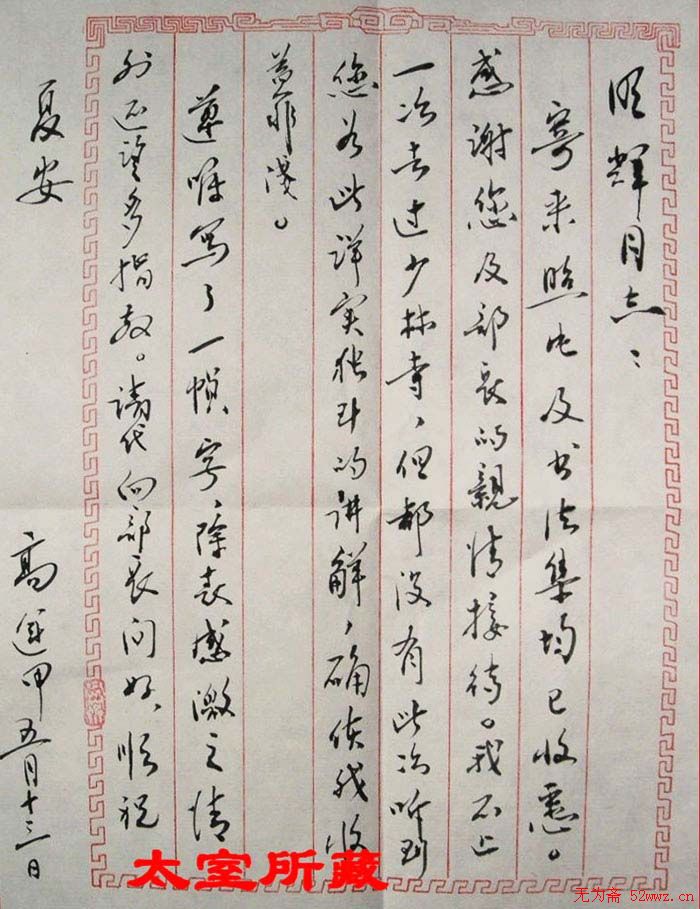 辉同志：
寄来照片及书法集均已收悉。
感谢您及部长的亲情接待。我不止
一次去过少林寺，但都没有此次听到
您为此详实独到的讲解，确使我收
益非浅。
遵嘱写了一帧字，除表感激之情
外还望多指教。请代向部长问好，顺祝
夏安
高运甲五月十三日
太室所藏
无为斋 52wwz.cn